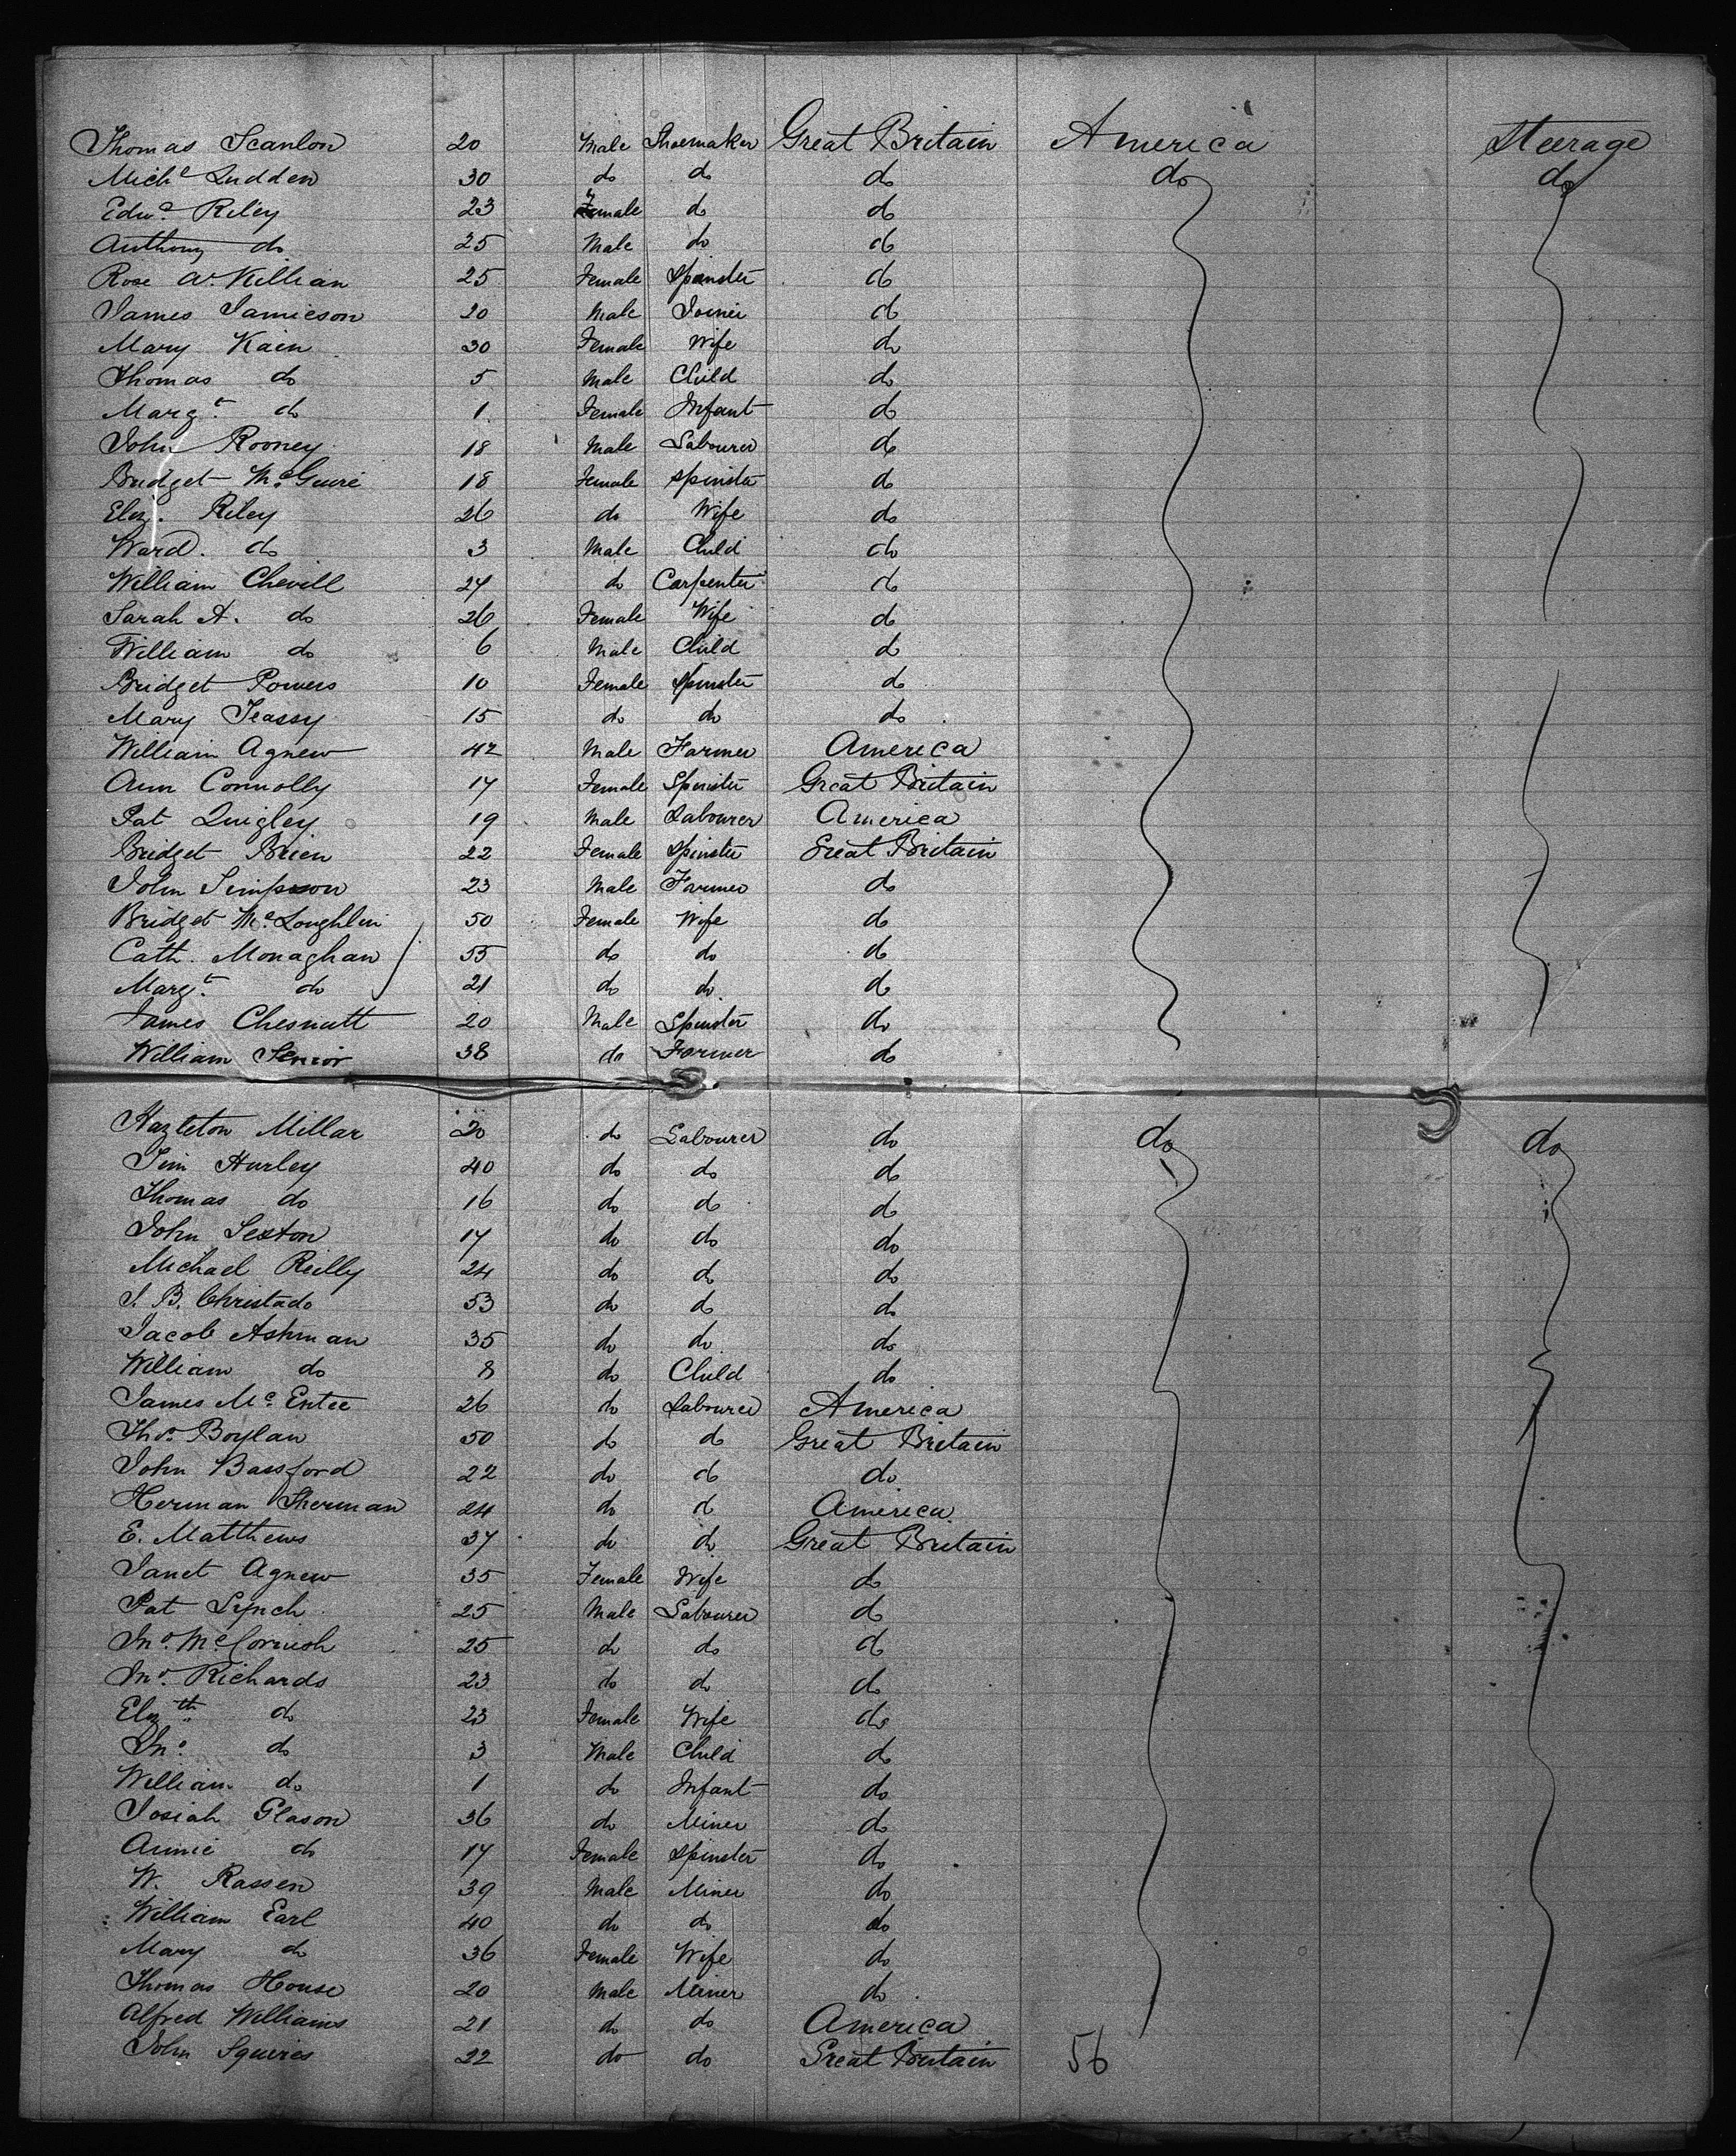 Thomas Scanlon 20 Male Shoemaker Great Britain America Steerage
Michl Ludden 30 do do do do do
Edwd Riley 23 Female do do
Anthony do 25 Male do do
Rose A. Killian 25 Female Spinster do
James Jamieson 20 Male Joiner do
Mary Kain 30 Female Wife do
Thomas do 5 Male Child do
Margt do 1 Female Infant do
John Rooney 18 Male Labourer do
Bridget McGuire 18 Female Spinster do
Eliz. Riley 26 do Wife do
Ward. do 3 Male Child do
William Chevill 27 do Carpenter do
Sarah A. do 26 Female Wife do
William do 6 Male Child do
Bridget Powers 10 Female Spinster do
Mary Teassy 15 do do do
William Agnew 42 Male Farmer America
Ann Connolly 17 Female Spinster Great Britain
Pat Quigley 19 Male Labourer America
Bridget Brien 22 Female Spinster Great Britain
John Simpson 23 Male Farmer do
Bridget McLoughlin 50 Female Wife do
Cath. Monaghan 55 do do do
Margt do 21 do do do
James Chesnutt 20 Male Spinster do
William Senior 38 do Farmer do
Hazleton Millar 20 do Labourer do do do
Tim Hurley 40 do do do
Thomas do 16 do do do
John Sexton 17 do do do
Michael Reilly 24 do do do
J. B. Christado 53 do do do
Jacob Ashman 35 do do do
William do 8 do Child do
James McEntee 26 do Labourer America
Thos Boylan 50 do do Great Britain
John Bassford 22 do do do
Herman Sherman 24 do do America
E. Matthews 37 do do Great Britain
Janet Agnew 35 Female Wife do
Pat Lynch 25 Male Labourer do
Jno McCornish 25 do do do
Jno Richards 23 do do do
Elizth do 23 Female Wife do
Jno do 3 Male Child do
William do 1 do Infant do
Josiah Glason 36 do Miner do
Annie do 17 Female Spinster do
W. Rassen 39 Male Miner do
William Earl 40 do do do
Mary do 36 Female Wife do
Thomas House 20 Male Miner do
Alfred Williams 21 do do America
John Squires 22 do do Great Britain 56